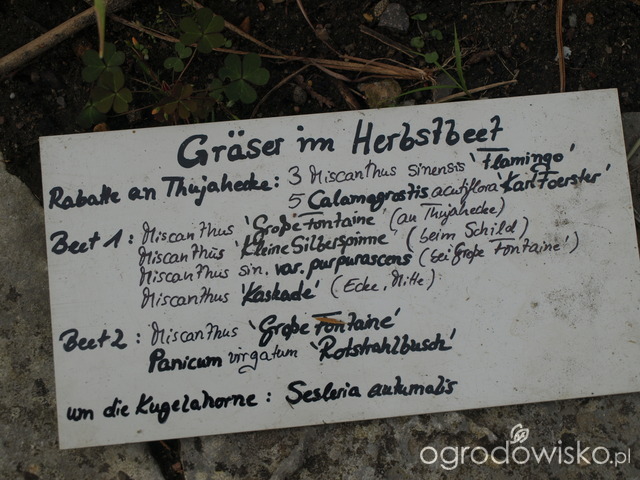 Gräser im Herbstbeet
Rabatte an Thujahecke: 3 Miscanthus sinensis 'Flamingo'
5 Calamagrostis acutiflora 'Karl Foerster'
Beet 1: Miscanthus 'Große Fontaine' (an Thujahecke)
Miscanthus 'Kleine Silberspinne' (beim Schild)
Miscanthus sin. var. purpurascens (bei Große Fontaine')
Miscanthus 'Kaskade' (Ecke, Mitte)
Beet 2: Miscanthus 'Große Fontaine'
Panicum virgatum 'Rotstrahlbusch'
um die Kugelahorne: Sesleria autumalis
ogrodowisko.pl